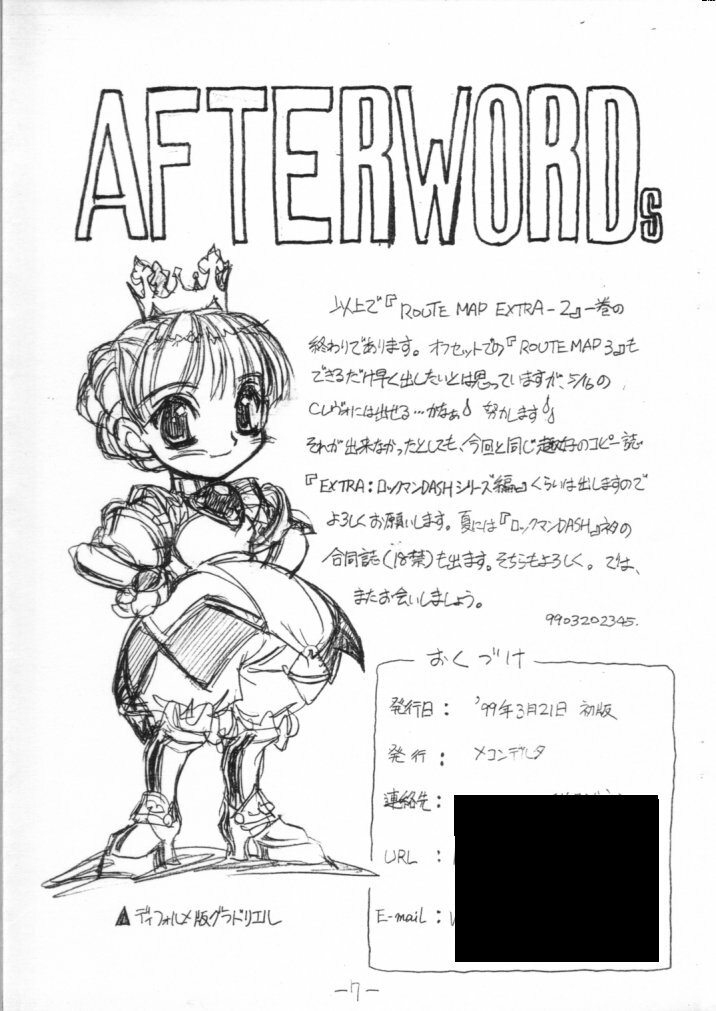 AFTERWORDs
以上で『ROUTE MAP EXTRA-2』一巻の
終わりであります。オフセットでの『ROUTE MAP 3』も
できるだけ早く出したいとは思っていますが、5/16の
CLヴォには出せる…かなぁ 努力します
それが出来なかったとしても、今回と同じ趣好のコピー誌
『EXTRA:ロックマンDASHシリーズ編』くらいは出しますので
よろしくお願いします。夏には『ロックマンDASH』ネタの
合同誌(18禁)も出ます。そちらもよろしく。では、
またお会いしましょう。
9903202345.
おくづけ
発行日: '99年3月21日 初版
発行: メコンデルタ
連絡先:
URL :
E-mail:
▲ディフォルメ版グラドリエル
-7-